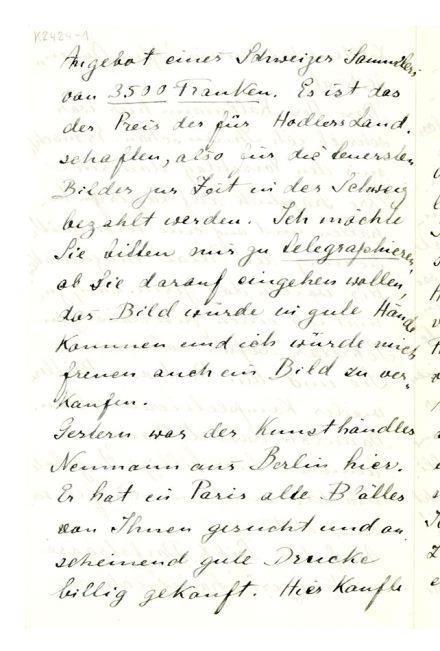 K2424-1
Angebot eines Schweizer Sammlers
von 3500 Franken. Es ist das
der Preis der für Hodlers Land,
schaften, also für die teuersten
Bilder zur Zeit in der Schweiz
bezahlt werden. Ich möchte
Sie bitten mir zu telegraphieren,
ob Sie darauf eingehen wollen,
das Bild würde in gute Hände
kommen und ich würde mich
freuen auch ein Bild zu ver„
kaufen.
Gestern war der Kunsthändler
Neumann aus Berlin hier.
Er hat in Paris alte Blätter
von Ihnen gesucht und an
scheinend gute Drucke
billig gekauft. Hier kaufte